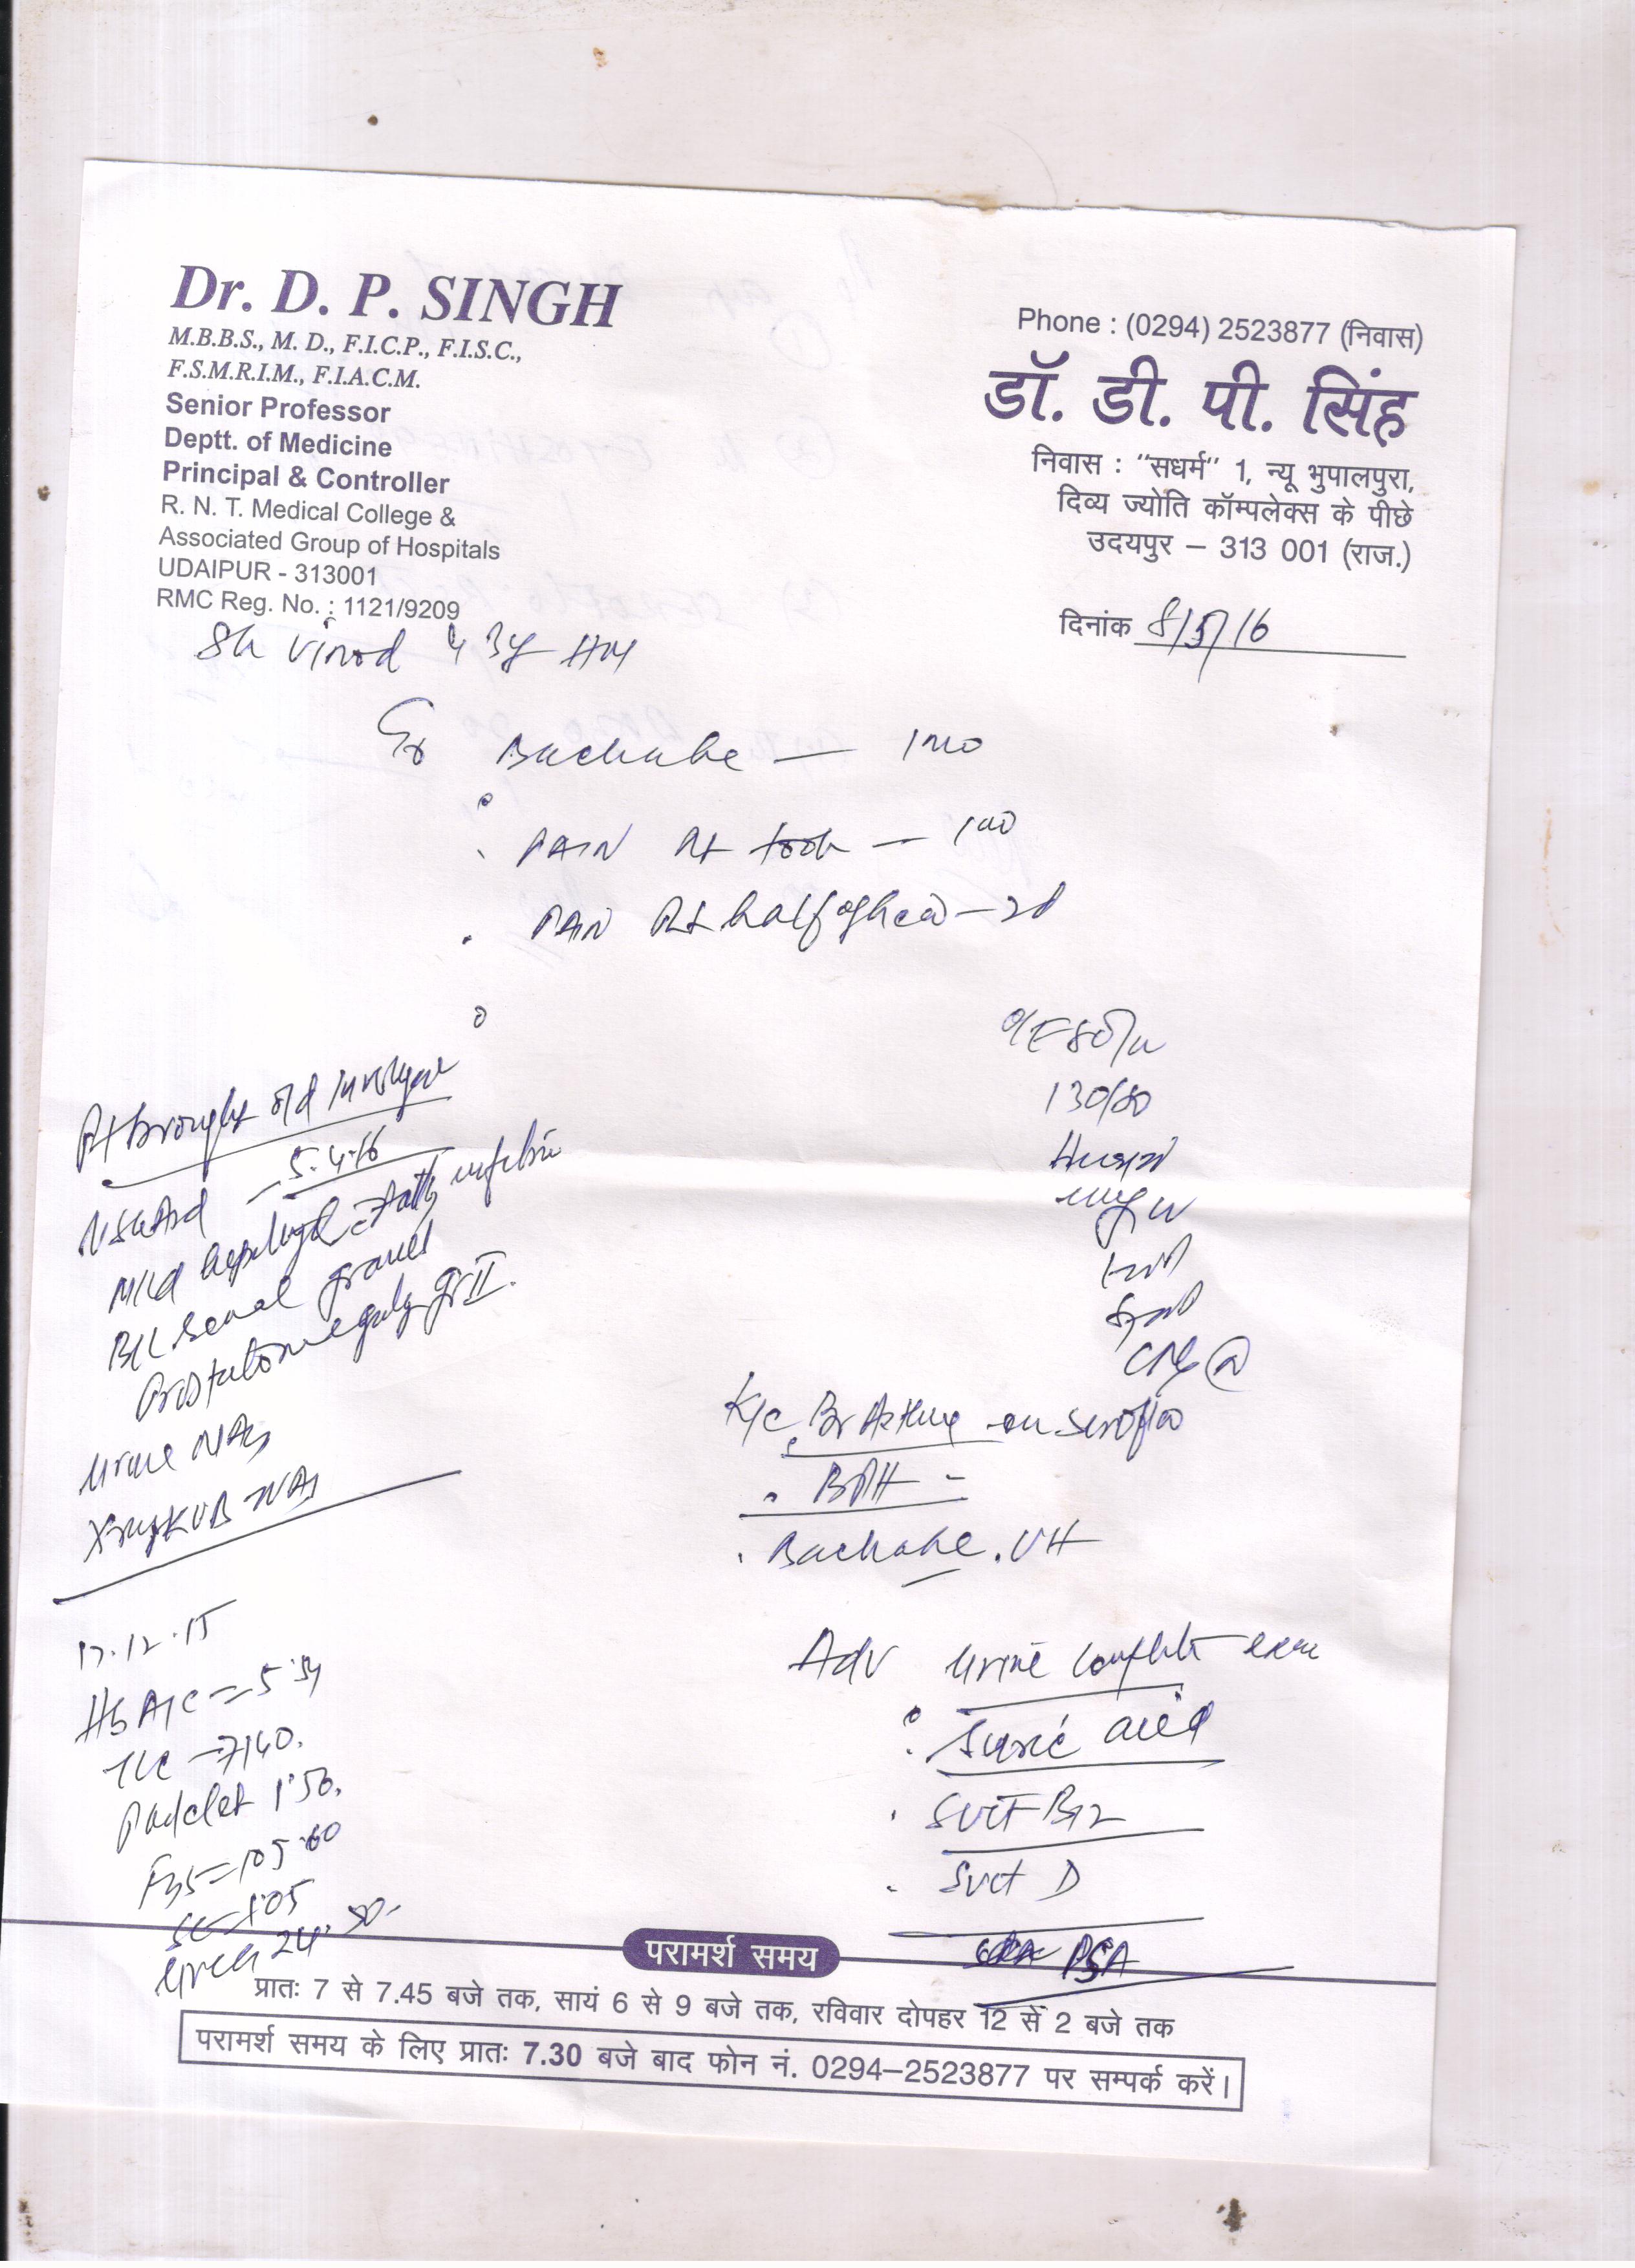 Dr. D. P. SINGH
M.B.B.S., M. D., F.I.C.P., F.I.S.C.,
F.S.M.R.I.M., F.I.A.C.M.
Senior Professor
Deptt. of Medicine
Principal & Controller
R. N. T. Medical College &
Associated Group of Hospitals
UDAIPUR - 313001
RMC Reg. No. : 1121/9209
Phone : (0294) 2523877 (निवास)
डॉ. डी. पी. सिंह
निवास : "सधर्म" 1, न्यू भुपालपुरा,
दिव्य ज्योति कॉम्पलेक्स के पीछे
उदयपुर – 313 001 (राज.)
दिनांक 8/5/16
Sh Vinod
Backache — 1mo
PAIN Rt tooth —
PAIN Rt half of head — 2d
O/E 80/m
130/80
K/C Br Asthma on seroflo
BPH -
Backache.
Pt brought old
5.4.16
Mild fatty
B/L renal gravel
Prostatomegaly gr II.
Urine NAD
Xray KUB NAD
17.12.15
HbA1c =
TLC - 7140.
Platelet 1.50.
FBS = 105.60
SC = 1.05
Urea 24.50.
Adv Urine complete exam
S uric acid
S vit B12
S vit D
PSA
परामर्श समय
प्रातः 7 से 7.45 बजे तक, सायं 6 से 9 बजे तक, रविवार दोपहर 12 से 2 बजे तक
परामर्श समय के लिए प्रातः 7.30 बजे बाद फोन नं. 0294–2523877 पर सम्पर्क करें।